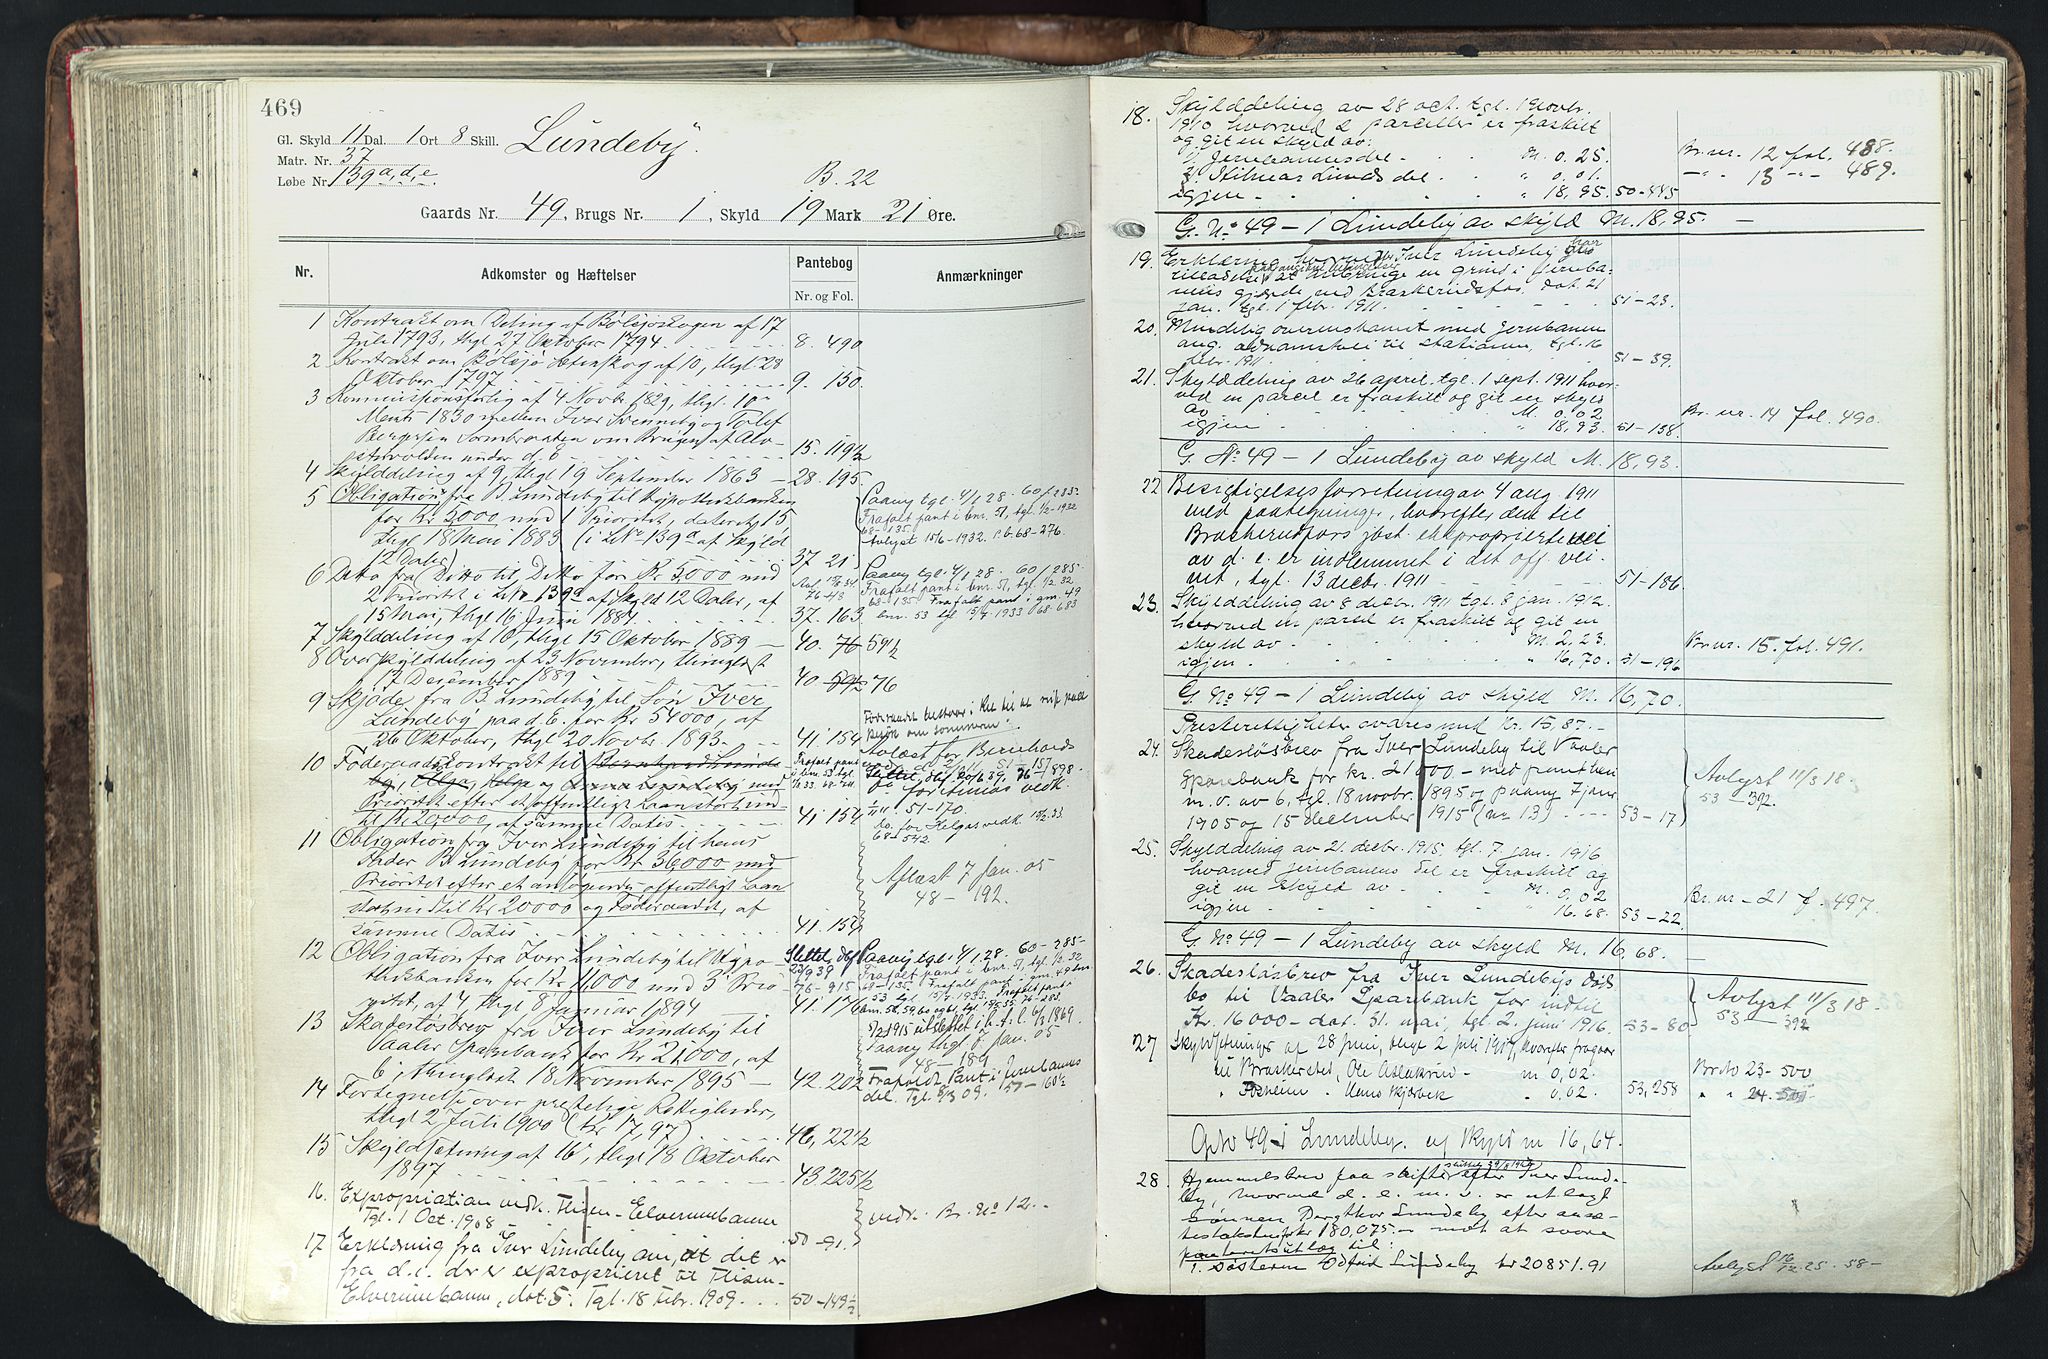 469
Gl. Skyld 11 Dal. 1 Ort 8 Skill. Lundeby.
Matr. Nr. 37
Løbe Nr. 139 a, d, e. B. 22
Gaards Nr. 49, Brugs Nr. 1, Skyld 19 Mark 21 Øre.
Nr. Adkomster og Hæftelser Pantebog Anmærkninger
Nr. og Fol.
1 Kontrakt om Deling af Bølsjøskogen af 17
Juli 1793, thgl 27 Oktober 1794. 8. 490
2 Kontrakt om Bølsjø af 10, thgl 28
Oktober 1797. 9. 150.
3 Kommissionsforlig af 4 Novbr. 1829, thgl. 10de
Marts 1830 mellem Iver Svenneby og Tolf
Bergersen om Brugen af
under d. E. 15. 119 1/2
4 Skylddeling af 9, thgl 19 September 1863 – 28. 195.
5 Obligation fra B. Lundeby til Hypothekbanken Paany tgl. 4/1 28. 60/285-
for Kr 3000 med 1 Prioritet, dateret 15 Frafalt pant i bnr. 51, tgl. 1/2-1932
thgl 18 Mai 1883 (i LNo 139a af Skyld 68-135.
12 Daler) 37 21 Avlyst 15/6-1932. p.b. 68-276.
6 Ditto fra Ditto til Ditto for Kr 5,000 med Paany tgl. 4/1 28. 60/285-
2 Prioritet i LNo 139a af Skyld 12 Daler, af 76-43 Frafalt pant i bnr. 51, tgl. 1/2 32
15 Mai, thgl 16 Juni 1884. 37. 163 68-135 Frafalt pant i gnr. 49
bnr. 53 tgl 15/7 1933 68-683
7 Skylddeling af 10, thgl 15 Oktober 1889 – 40. 76 59 1/2
8 Overskylddeling af 23 November, thinglæst
17 December 1889 40 59 1/2 76
9 Skjøde fra B. Lundeby til Søn Iver
Lundeby paa d. E. for Kr 54000, af
26 Oktober, thgl 20 Novbr. 1893. 41. 154
10 Føderaadskontrakt til Bernhard Lunde-
by, Olga, Helga og Anna Lundeby med
Prioritet efter et offentligt Laan stort ind-
til Kr. 20,000, af samme Datis 41. 154
11 Obligation fra Iver Lundeby til hans
Fader B. Lundeby for Kr 36000 med
Prioritet efter et anlogende offentligt Laan Aflæst 7 Jan. 05
stort indtil Kr 20000 og Føderaadet, af 48 – 192.
samme Datis 41. 154
12 Obligation fra Iver Lundeby til Hypo- Slettet, dbf Paany tgl. 4/1. 28. 60-285-
thekbanken for Kr 11,000 med 3 Prio- 23/9 39 Frafalt pant i bnr. 51, tgl. 1/2 32
ritet, af 4, thgl 8 Januar 1894 76-915 68-135. Frafalt pant i gnr. 49 bnr.
41. 176 53 tgl 15/7 1933.
13 Skadesløsbrev fra Iver Lundeby til
Vaaler Sparebank for Kr 21,000, af Paany thgl 7. Jan. 05
6, thinglæst 18 November 1895 – 42. 202 48 – 189
14 Fortegnelse over prestelige Rettigheder, Frafaldt Pant i Jernbanens
thgl 2 Juli 1900 (Kr 17,97). 46, 22 1/2 del. Tgl. 8/3 09. 50-60 1/2
15 Skyldsætning af 16, thgl 18 Oktober
1897 43. 225 1/2
16. Expropriation vedk. Flisen-Elverumbanen
Tgl. 1 Oct. 1908 50-91. vedk. Br. No 12.
17 Erklæring fra Iver Lundeby om, at det er
fra d. e. der er exproprieret til Flisen-
Elverumbanen, dat. 5. Tgl. 18 Febr. 1909. 50-149 1/2
18. Skylddeling av 28 oct. tgl. 1 novbr.
1910 hvorved 2 parceller er fraskilt
og git en skyld av:
1, Jernbanens del M. 0.25. Br.nr. 12 fol. 488.
2, Hilmar Lunds del " 0.01. –"– 13 –"– 489.
igjen " 18,95. 50-445
G. No 49 – 1 Lundeby av skyld M. 18,95. –
19. Erklæring hvorved Iver Lundeby har
tilladelse at anbringe en grind i jernba-
nens gjærde ved Braskerudfos. Dat. 21
jan. tgl. 1 febr. 1911. 51-23.
20. Mindelig overenskomst med jernbanen
ang. adkomstvei til stationen, tgl. 16
febr. 1911. 51-39.
21. Skylddeling av 26 april, tgl. 1 sept. 1911 hvor-
ved en parcel er fraskilt og git en skyld
av M. 0.02 Br.nr. 14 fol. 490.
igjen " 18,93. 51-138.
G. No 49 – 1 Lundeby av skyld M. 18,93.
22 Besigtigelsesforretning av 4 aug. 1911
med paategninger, hvorefter den til
Braskerudfors jbst. ekspropierte vei
av d. e. er indlemmet i det off. vei-
net, tgl. 13 decbr. 1911 51-186.
23. Skylddeling av 8 decbr. 1911 tgl. 8 jan. 1912.
hvorved en parcel er fraskilt og git en
skyld av M. 2,23. Br.nr. 15. fol. 491.
igjen " 16,70. 51-196
G. No 49 – 1 Lundeby av skyld M. 16,70.
Presterettigheter svares med Kr. 15,87.
24. Skadesløsbrev fra Iver Lundeby til Vaaler
Sparebank for kr. 21000 – med
m. v. av 6, tgl. 18 novbr. 1895 og paany 7 jan. Avlyst 11/3 18.
1905 og 15 december 1915 (nr 13) 53-17 53 – 392.
25. Skylddeling av 21. decbr. 1915, tgl. 7. jan. 1916
hvorved jernbanens del er fraskilt og
git en skyld av M. 0,02 Br.nr – 21 f. 497.
igjen " 16.68. 53-22
G. No 49 – 1 Lundeby av skyld M. 16,68.
26. Skadesløsbrev fra Iver Lundebys døds-
bo til Vaaler Sparebank for indtil Avlyst 11/3 18.
Kr. 16000 – dat. 31. mai, tgl. 2. juni 1916. 53-80 53 – 392
27 Skyldsetninger af 28 juni, thgl 2 juli 1917, hvorefter fragaar
til Braskerud, Ole Aslaksrud – m 0,02. Br No 23-500
" Fosheim. Hans Skjørbek " 0,02. 53, 258 " " 24. 501
Gno 49-1 Lundeby. af Skyld m 16,64.
28. Hjemmelsbrev paa skifte efter Iver Lunde-
by, hvorved d. e. m. v. er utlagt
sønnen Bergthor Lundeby efter anse-
telsestakst kr 180,075.– mot at svare
panteretsutlæg til:
1. søsteren Østfrid Lundeby kr 20851.91 Avlyst 16/12.25. 58 –